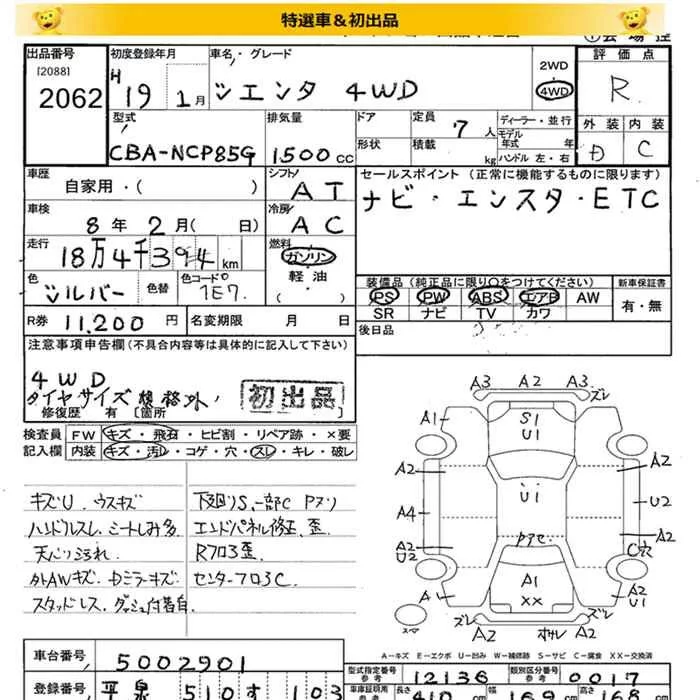 特選車&初出品
出品番号 初度登録年月 車名・グレード 2WD 4WD 評価点
[2088] 2062 H 19 1月 シエンタ 4WD R
型式 排気量 ドア 定員 ディーラー・並行 外装 内装
CBA-NCP85G 1500CC 形状 積載 7人 kg モデル年式 年 ハンドル 左・右 D C
車歴 シフト セールスポイント (正常に機能するものに限ります)
自家用・( ) AT ナビ・エンスタ・ETC
車検 冷房
8年 2月( 日) AC
走行 燃料
18万4千394km ガソリン
軽・油
色 色替 色コードNo ( )
シルバー 1E7 装備品 (純正品に限り○をつけてください) 新車保証書
PS PW ABS エアB AW 有・無
R券 11,200円 名変期限 月 日 SR ナビ TV カワ
注意事項申告欄 (不具合内容等は具体的に記入して下さい) 後日品
4WD
タイヤサイズ規格外 初出品
修復歴 有 [箇所
検査員 FW キズ・飛石・ヒビ割・リペア跡・×要
記入欄 内装 キズ・汚レ・コゲ・穴・スレ・キレ・破レ
キズU. ウスキズ 下廻りS、一部C Pヌリ
ハンドルスレ. シートしみ多 エンドパネル修正、歪.
天バリ汚れ. Rフロア歪.
外AWキズ. ドミラーキズ センターフロアC.
スタッドレス. ダッシュ付着有
A3 A2 A3 ズレ
A1 S1 U1
A2 A2
U1 U2
A4
A2 U2 A2 C穴
A1 XX
A A2 U1
スペア ズレ A2 ズレ A2 ズレ
A-キズ E-エクボ U-凹み W-補修跡 S-サビ C-腐食 XX-交換済
車台番号 5002901 型式指定番号 参考 12136 類別区分番号 参考 0017
登録番号 510 す 103 車庫証明用 参考 長さ 410 cm 幅 169 cm 高さ 168 cm